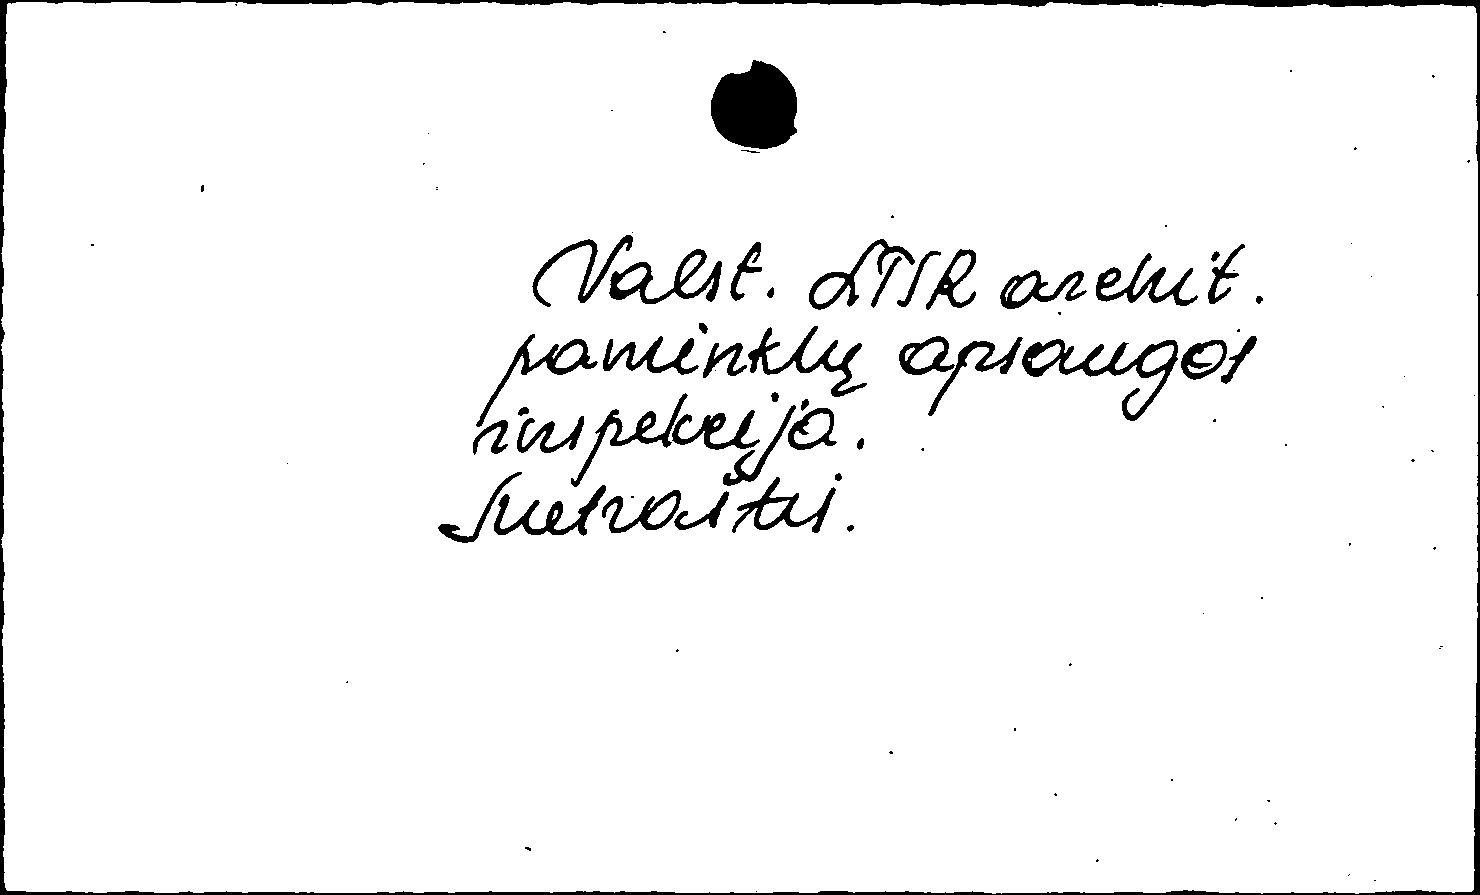 Valst. LTSR archit.
paminklų apsaugos
inspekcija.
Metraštis.